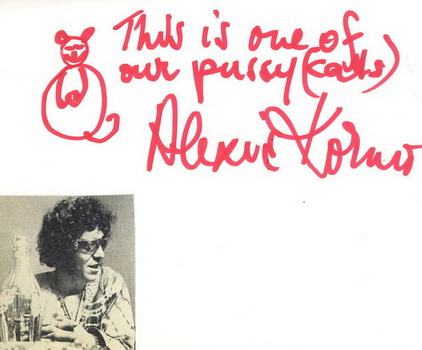 This is one of
our pussy(cats)
Alexis Korner